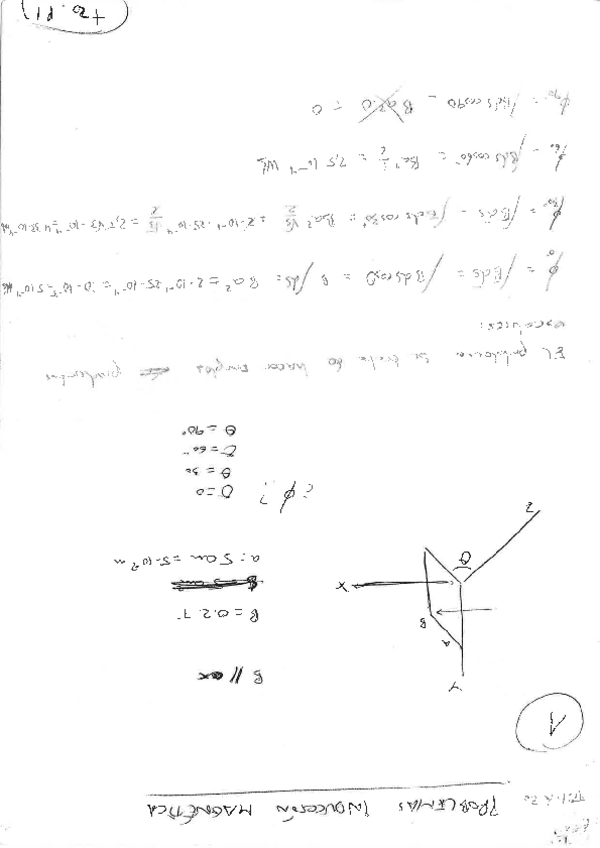 PROBLEMAS INDUCCIÓN MAGNÉTICA
1
Y
B // ox
A
B
B = 0.2 T
X
a = 5 cm = 5·10⁻² m
θ
Z
¿ ϕ ?
θ = 0
θ = 30
θ = 60°
θ = 90°
El problema se trata de hacer simples productos
escalares:
ϕ0° = ∫Bds = ∫Bdscos0 = B∫ds = Ba² = 2·10⁻¹·25·10⁻⁴ = 5·10⁻⁴ Wb
ϕ30° = ∫Bds = ∫Bds cos30° = Ba² √3/2 = 2·10⁻¹·25·10⁻⁴ √3/2 = 2,5 √3·10⁻⁴ = 4,33·10⁻⁴ Wb
ϕ60 = ∫Bds cos60° = Ba² 1/2 = 2,5 10⁻⁴ Wb
ϕ90° = ∫Bds cos90 = Ba²·0 = 0